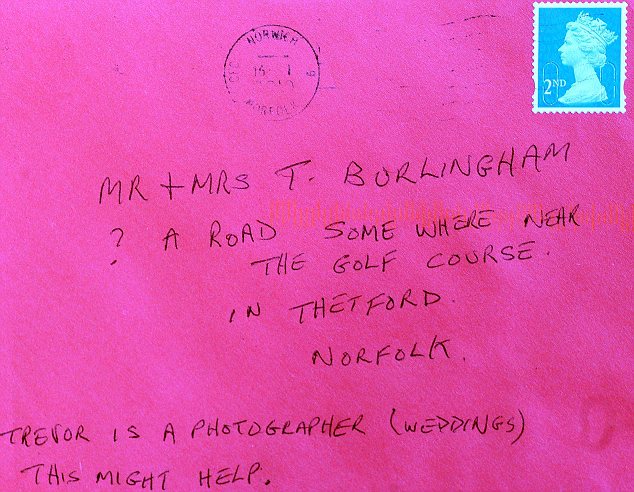 NORWICH
NORFOLK
2ND
MR + MRS T. BURLINGHAM
? A ROAD SOME WHERE NEAR
THE GOLF COURSE.
IN THETFORD.
NORFOLK.
TREVOR IS A PHOTOGRAPHER (WEDDINGS)
THIS MIGHT HELP.